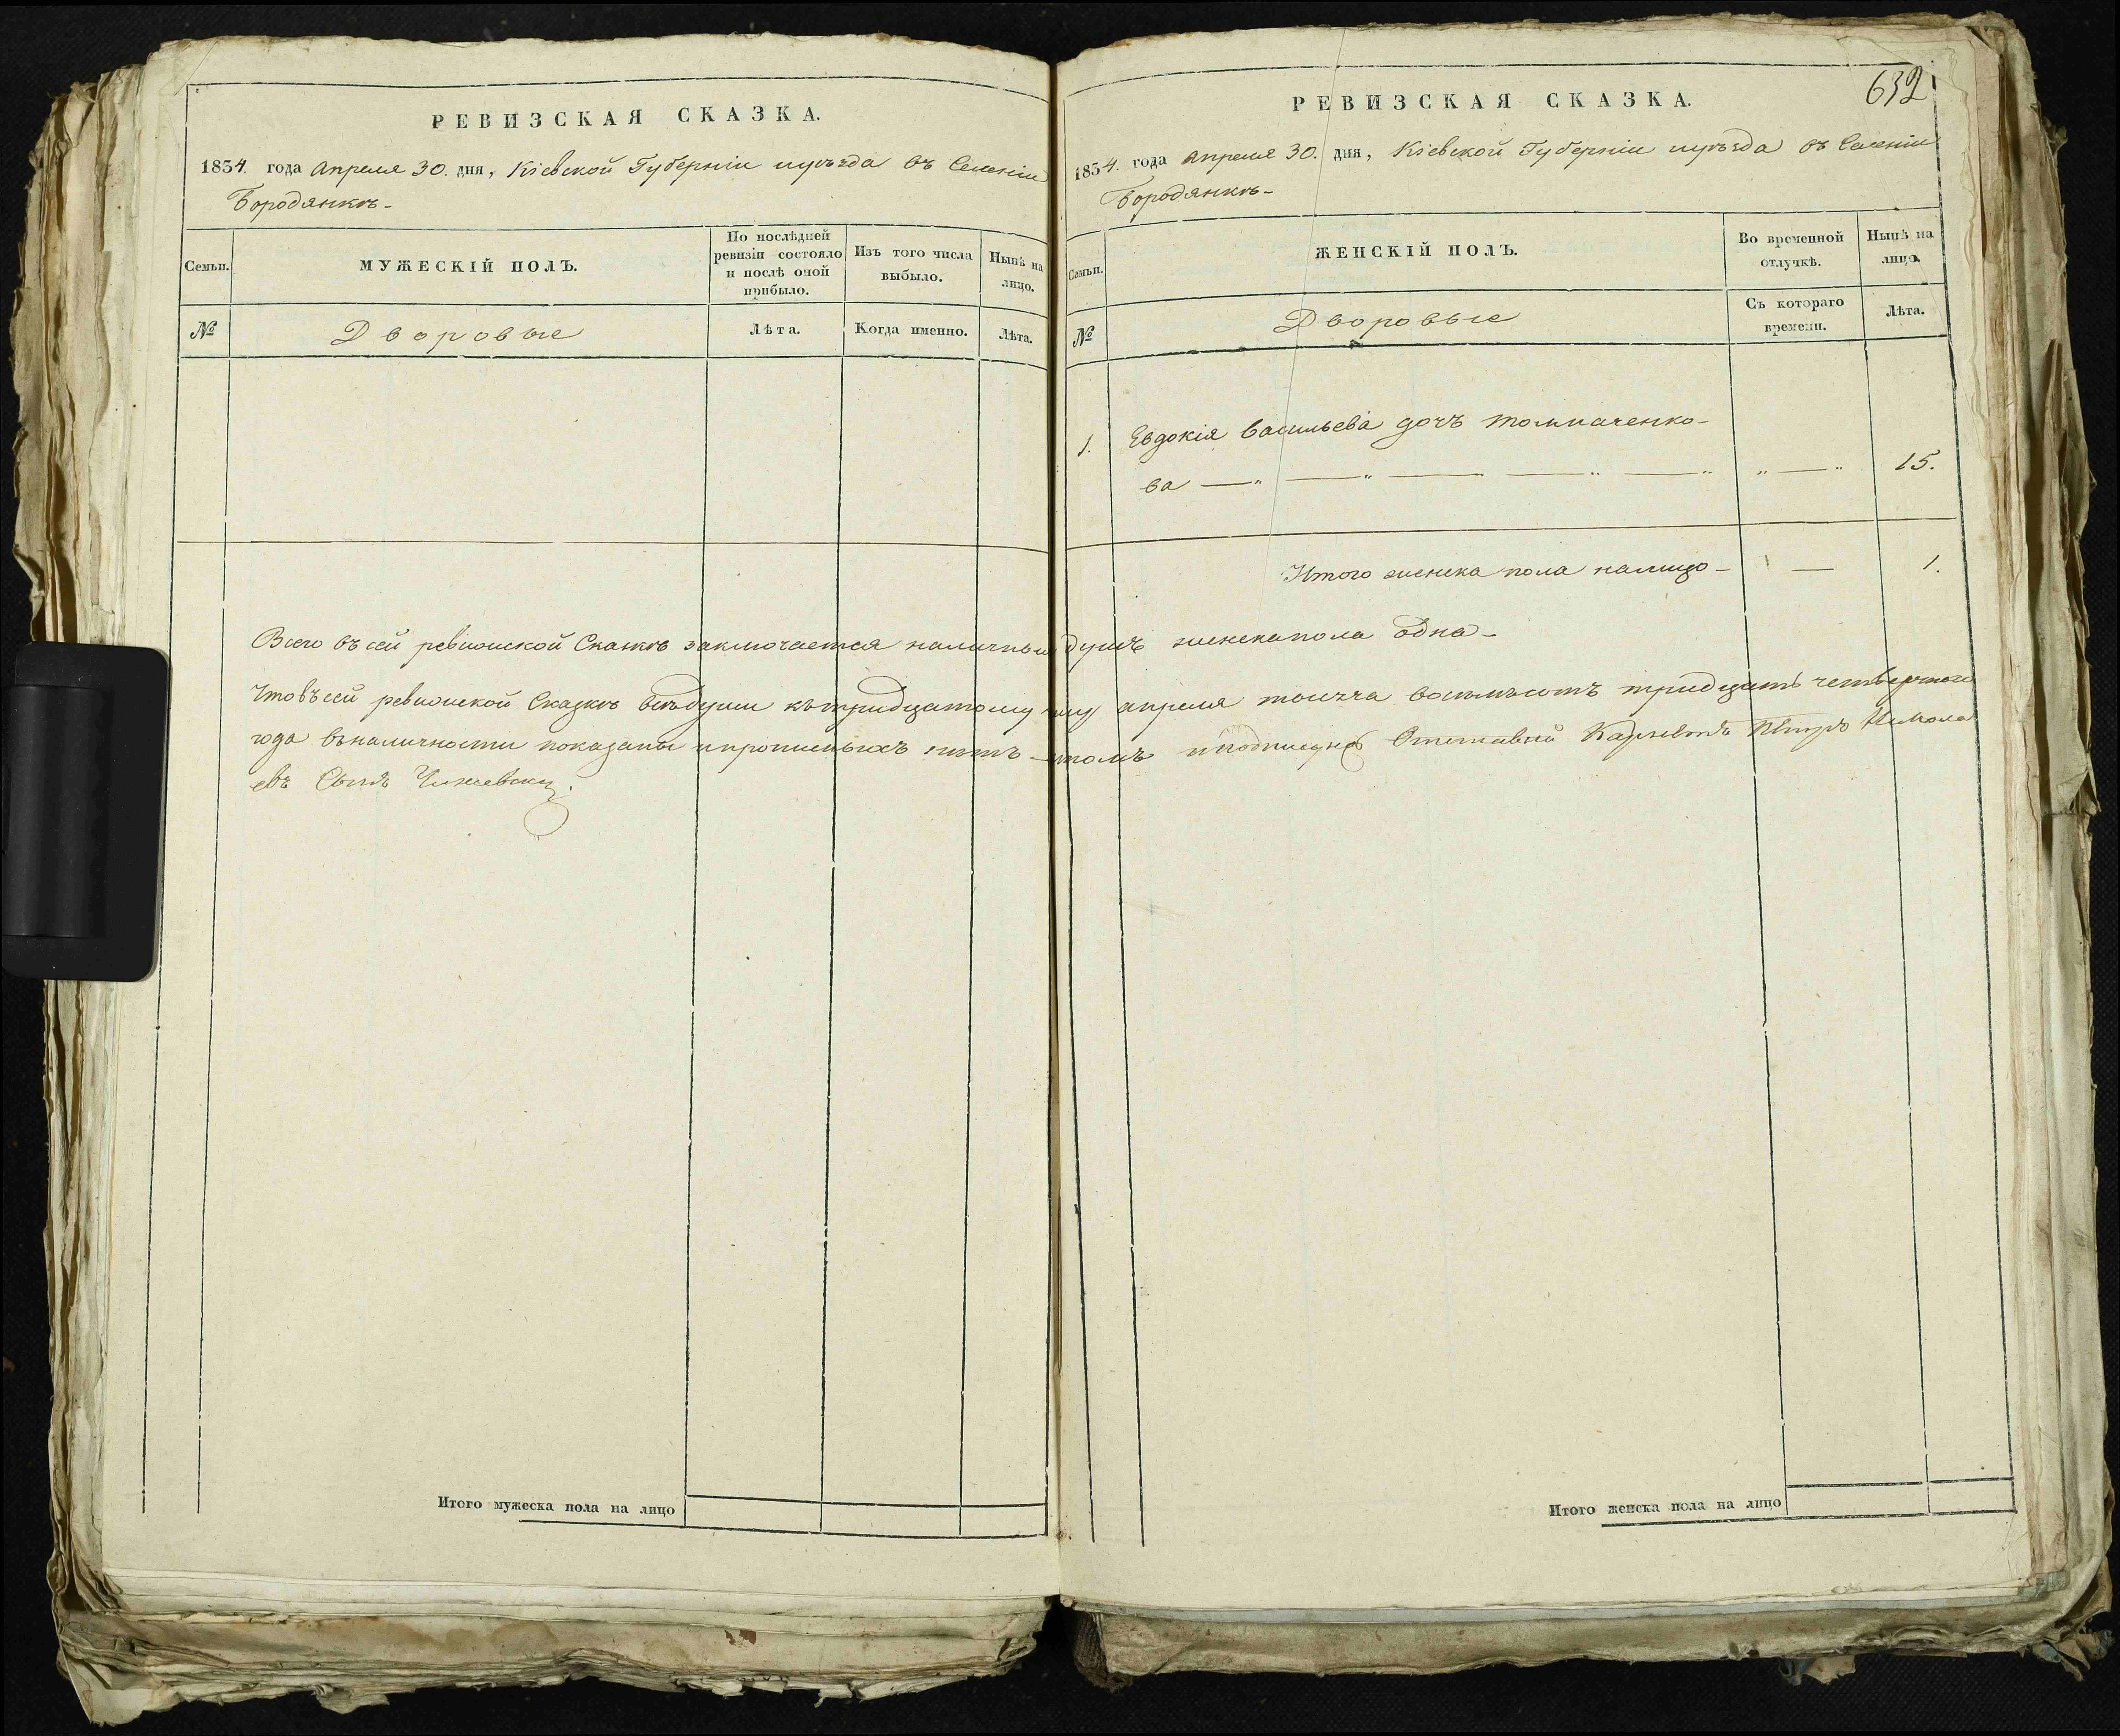 РЕВИЗСКАЯ СКАЗКА.
1834. года Апреля 30. дня, Кіевской Губерніи иуѣзда въ Селеніи
Бородянкѣ-
Семьи.
МУЖЕСКІЙ ПОЛЪ.
По послѣдней
ревизіи состояло
и послѣ оной
прибыло.
Изъ того числа
выбыло.
Нынѣ на
лицо.
№
Дворовые
Лѣта.
Когда именно.
Лѣта.
Итого мужеска пола на лицо
632
РЕВИЗСКАЯ СКАЗКА.
1834. года Апреля 30. дня, Кіевской Губерніи иуѣзда въ Селеніи
Бородянкѣ-
Семьи.
ЖЕНСКІЙ ПОЛЪ.
Во временной
отлучкѣ.
Нынѣ на
лицо.
№
Дворовые
Съ котораго
времени.
Лѣта.
1. Евдокія Васильева дочъ Толмаченко-
ва — „ — „ — — „ — „ „ — „ 15.
Итого женска пола налицо - — 1.
Всего въ сей ревизской Сказкѣ заключается наличныхъ душъ женскапола одна-
Чтовъсей ревизской Сказкѣ всѣдуши къ тридцатому апреля тысяча восемьсотъ тридцать четвертого
года въналичности показаны ипрописныхъ нѣтъ - томъ иподписуюсь Отставной Корнетъ Петръ Никола
евъ Сынъ Чижевски.
Итого женска пола на лицо